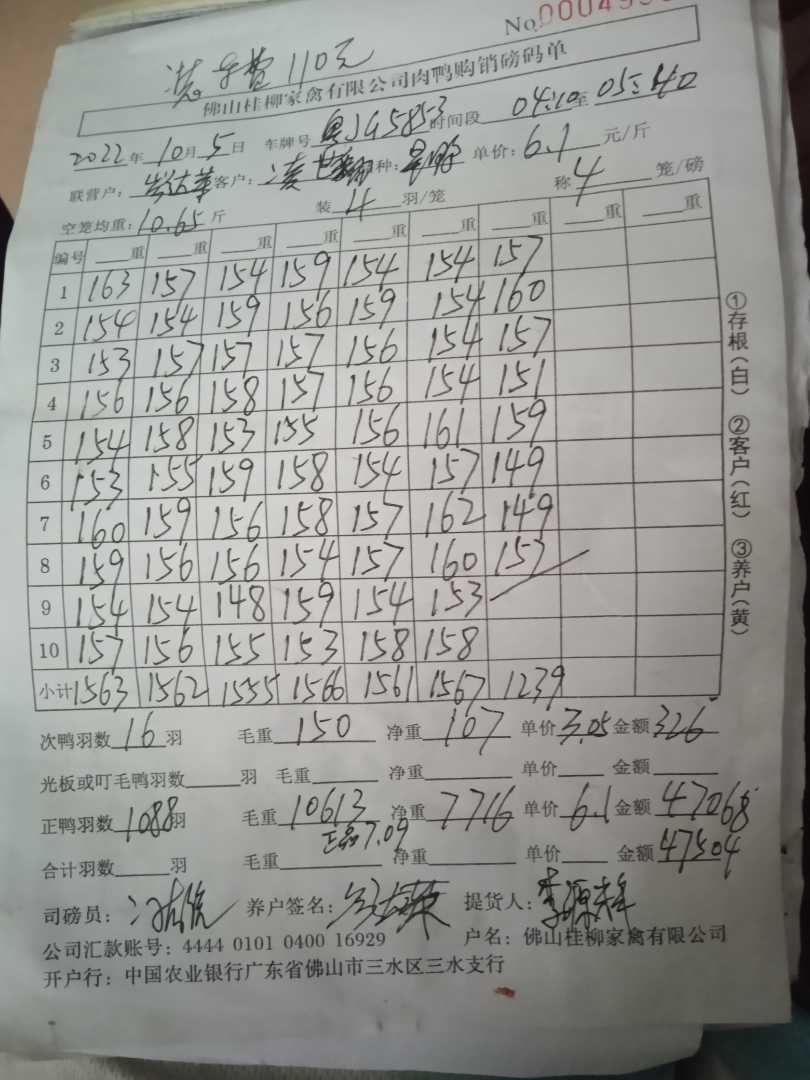 No 0004
装车费110元
佛山桂柳家禽有限公司肉鸭购销磅码单
2022年10月5日 车牌号 粤JG5853 时间段 04:10至05:40
联营户: 客户:凌 种: 单价:6.1元/斤
空笼均重:10.65斤 装4羽/笼 称4笼/磅
编号 重 重 重 重 重 重 重 重 重
1 163 157 154 159 154 154 157
2 154 154 159 156 159 154 160
3 153 157 157 157 156 154 157
4 156 156 158 157 156 154 151
5 154 158 153 155 156 161 159
6 153 155 159 158 154 157 149
7 160 159 156 158 157 162 149
8 159 156 156 154 157 160 153
9 154 154 148 159 154 153
10 157 156 155 153 158 158
小计 1563 1562 1555 1566 1561 1567 1239
次鸭羽数16羽 毛重150 净重107 单价3.05 金额326
光板或叮毛鸭羽数 羽 毛重 净重 单价 金额
正鸭羽数1088羽 毛重10613 净重7716 单价6.1 金额47068
7.09
合计羽数 羽 毛重 净重 单价 金额47504
司磅员: 养户签名: 提货人:李源
公司汇款账号:4444 0101 0400 16929 户名:佛山桂柳家禽有限公司
开户行:中国农业银行广东省佛山市三水区三水支行
①存根(白) ②客户(红) ③养户(黄)